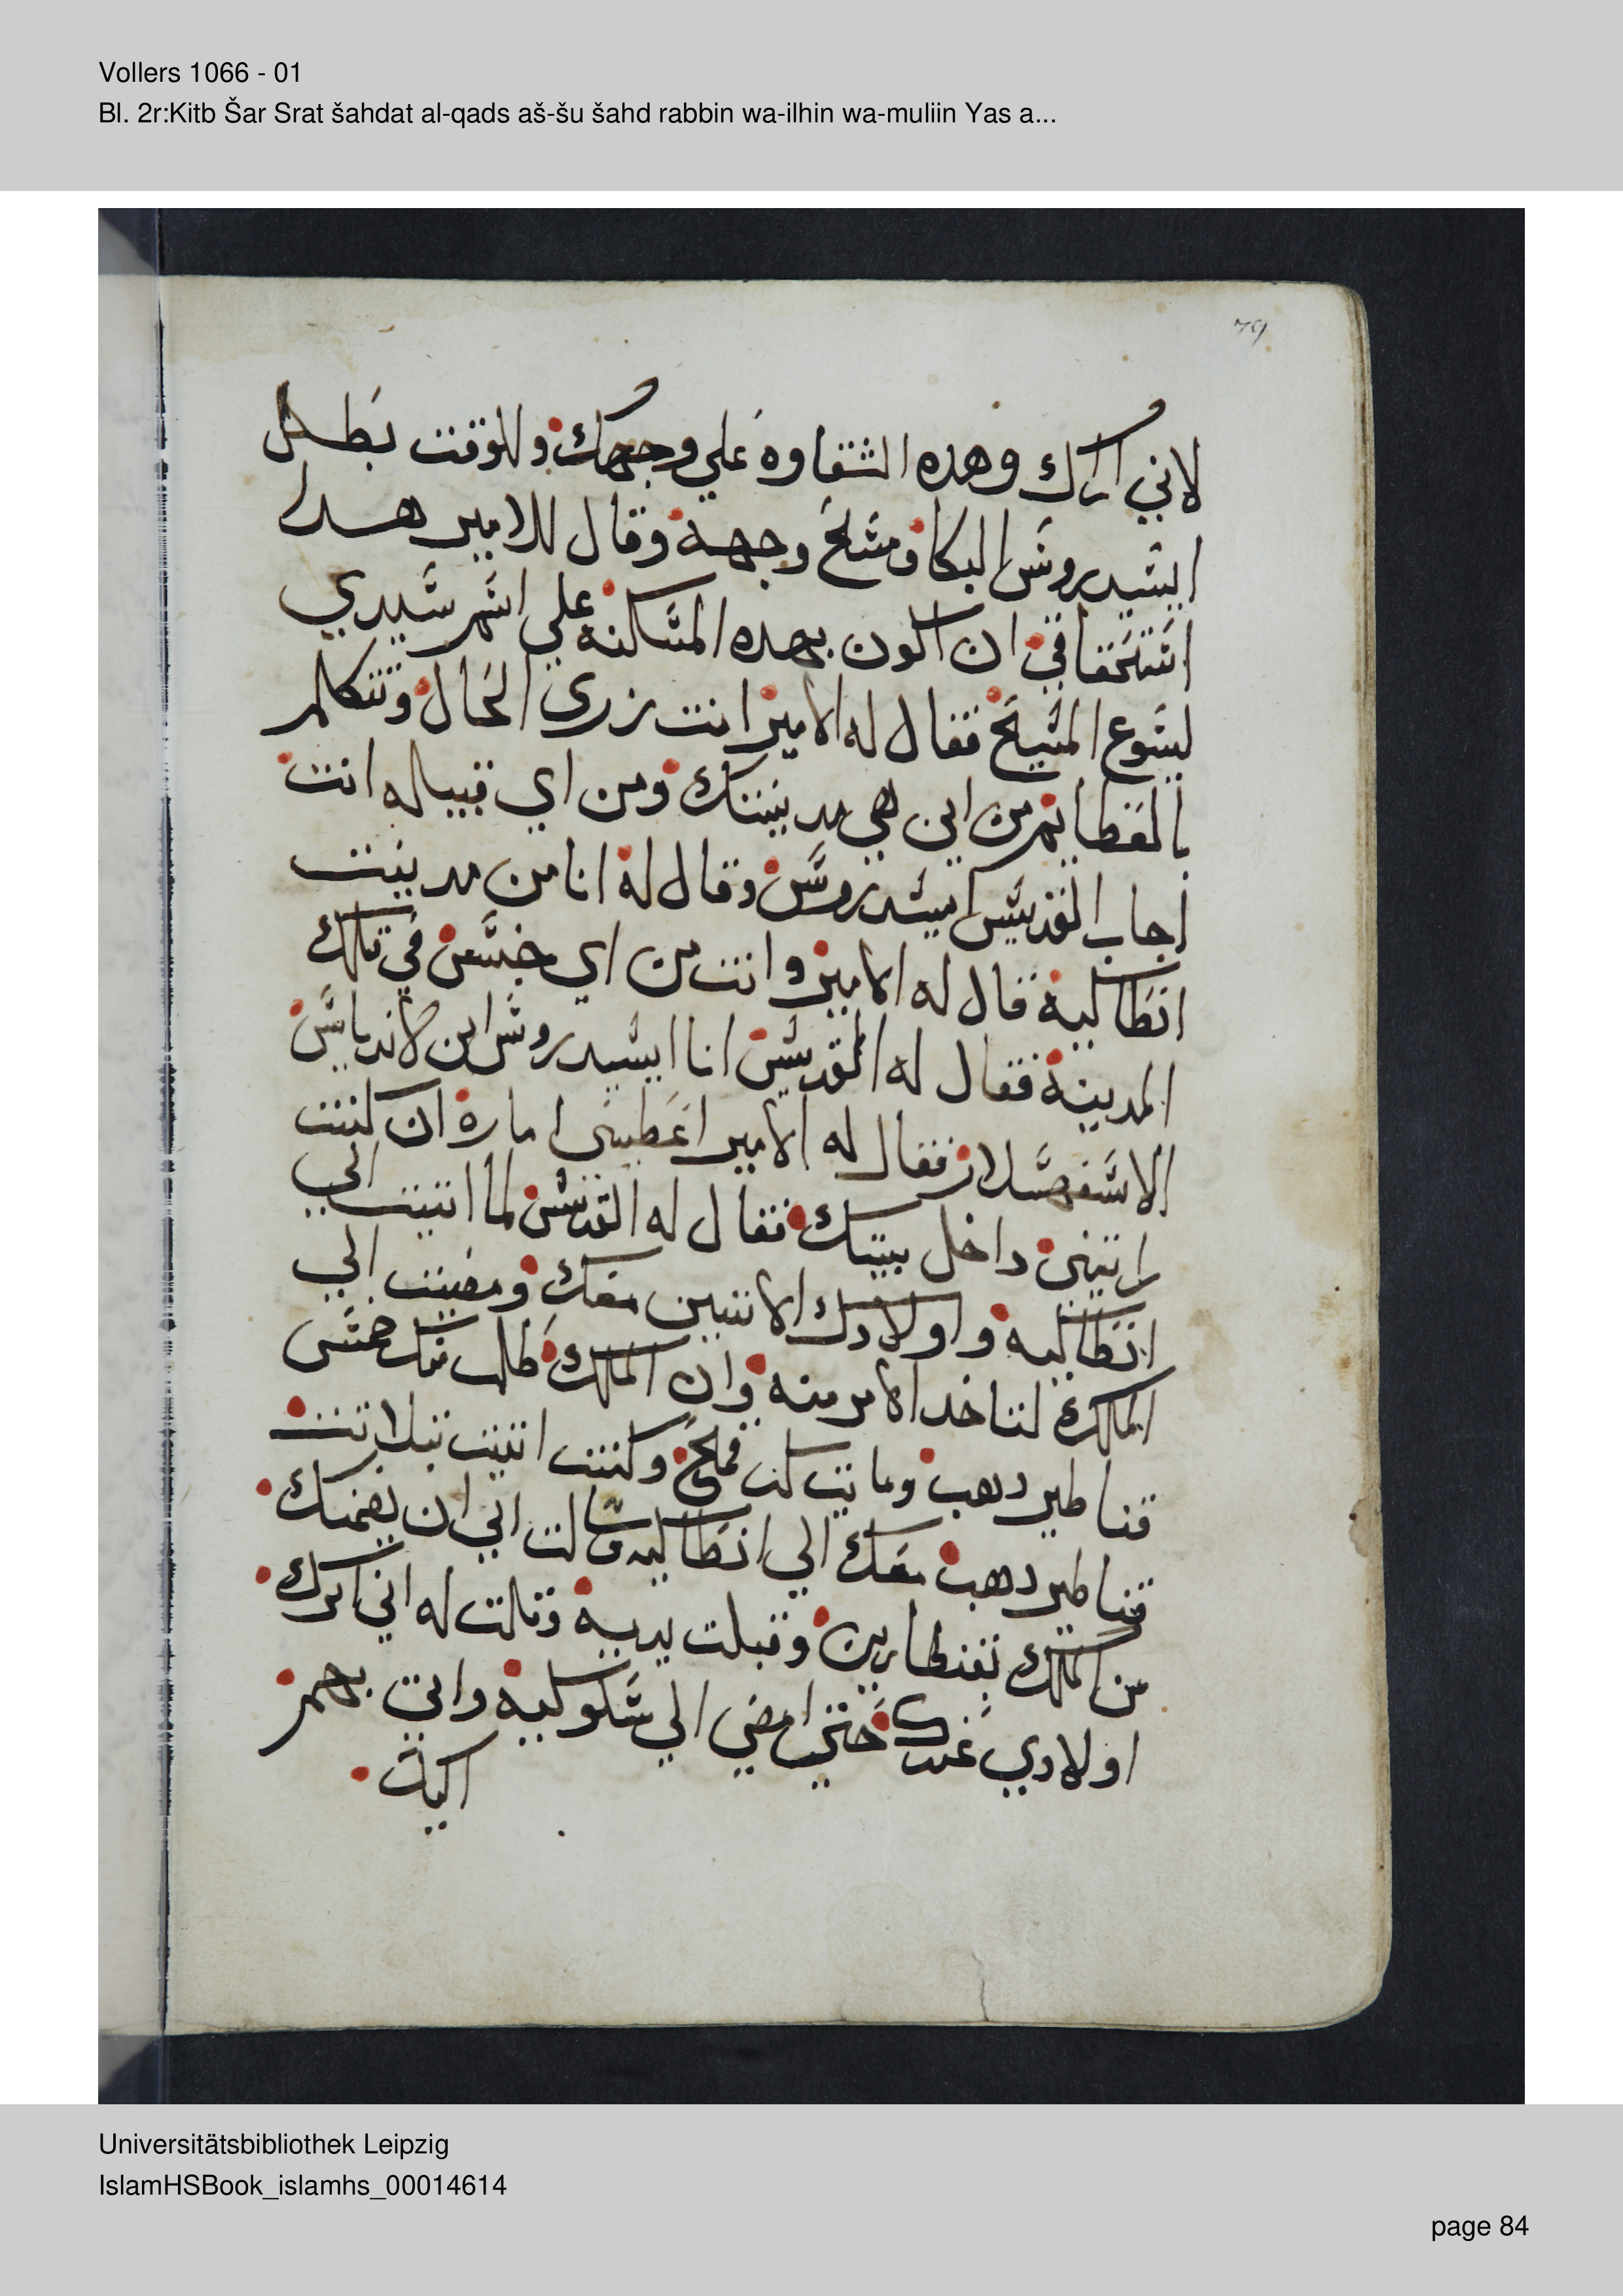 Vollers 1066 - 01
Bl. 2r:Kitb Šar Srat šahdat al-qads aš-šu šahd rabbin wa-ilhin wa-muliin Yas a...
79
لاني اراك وهده الشقاوه علي وجهك وللوقت بطل
ايشيدروس البكا ومسح وجهه وقال للامير هدا
استحقاقي ان اكون بهده المسكنه علي اسم سيدي
يسوع المسيح فقال له الامير انت زري الحال وتتكلم
بالعظايم من اين هي مدينتك ومن اي قبيله انت
اجاب القديس ايسيدروس وقال له انا من مدينت
انطاكيه قال له الامير وانت من اي جنس في تلك
المدينه فقال له القديس انا ايسيدروس ابن لاندياس
الاسفهسلار فقال له الامير اعطيني اماره ان كنت
رايتني داخل بيتك فقال له القديس لما اتيت الي
انطاكيه واولادك الاتنين معك ومضيت الي
الملك لتاخد الامر منه وان الملك طلب منك خمس
قناطير دهب وكنت اتيت
قناطير دهب معك الي انطاكيه الي ابي ان يضمنك
من الملك بقنطارين وقبلت يديه وقالت له اني اترك
اولادي عندك حتي امضي الي سلوكيه واتي بهم
اليك
Universitätsbibliothek Leipzig
IslamHSBook_islamhs_00014614
page 84